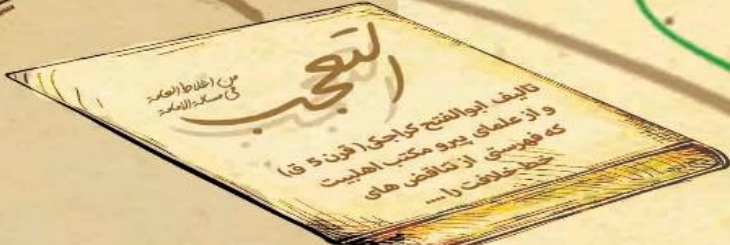 التعجب
من اغلاط العامة
فی مسالة الامامة
تالیف ابوالفتح کراجکی (قرن 5 ق)
و از علمای پیرو مکتب اهلبیت
که فهرستی از تناقض های
خط خلافت را ....